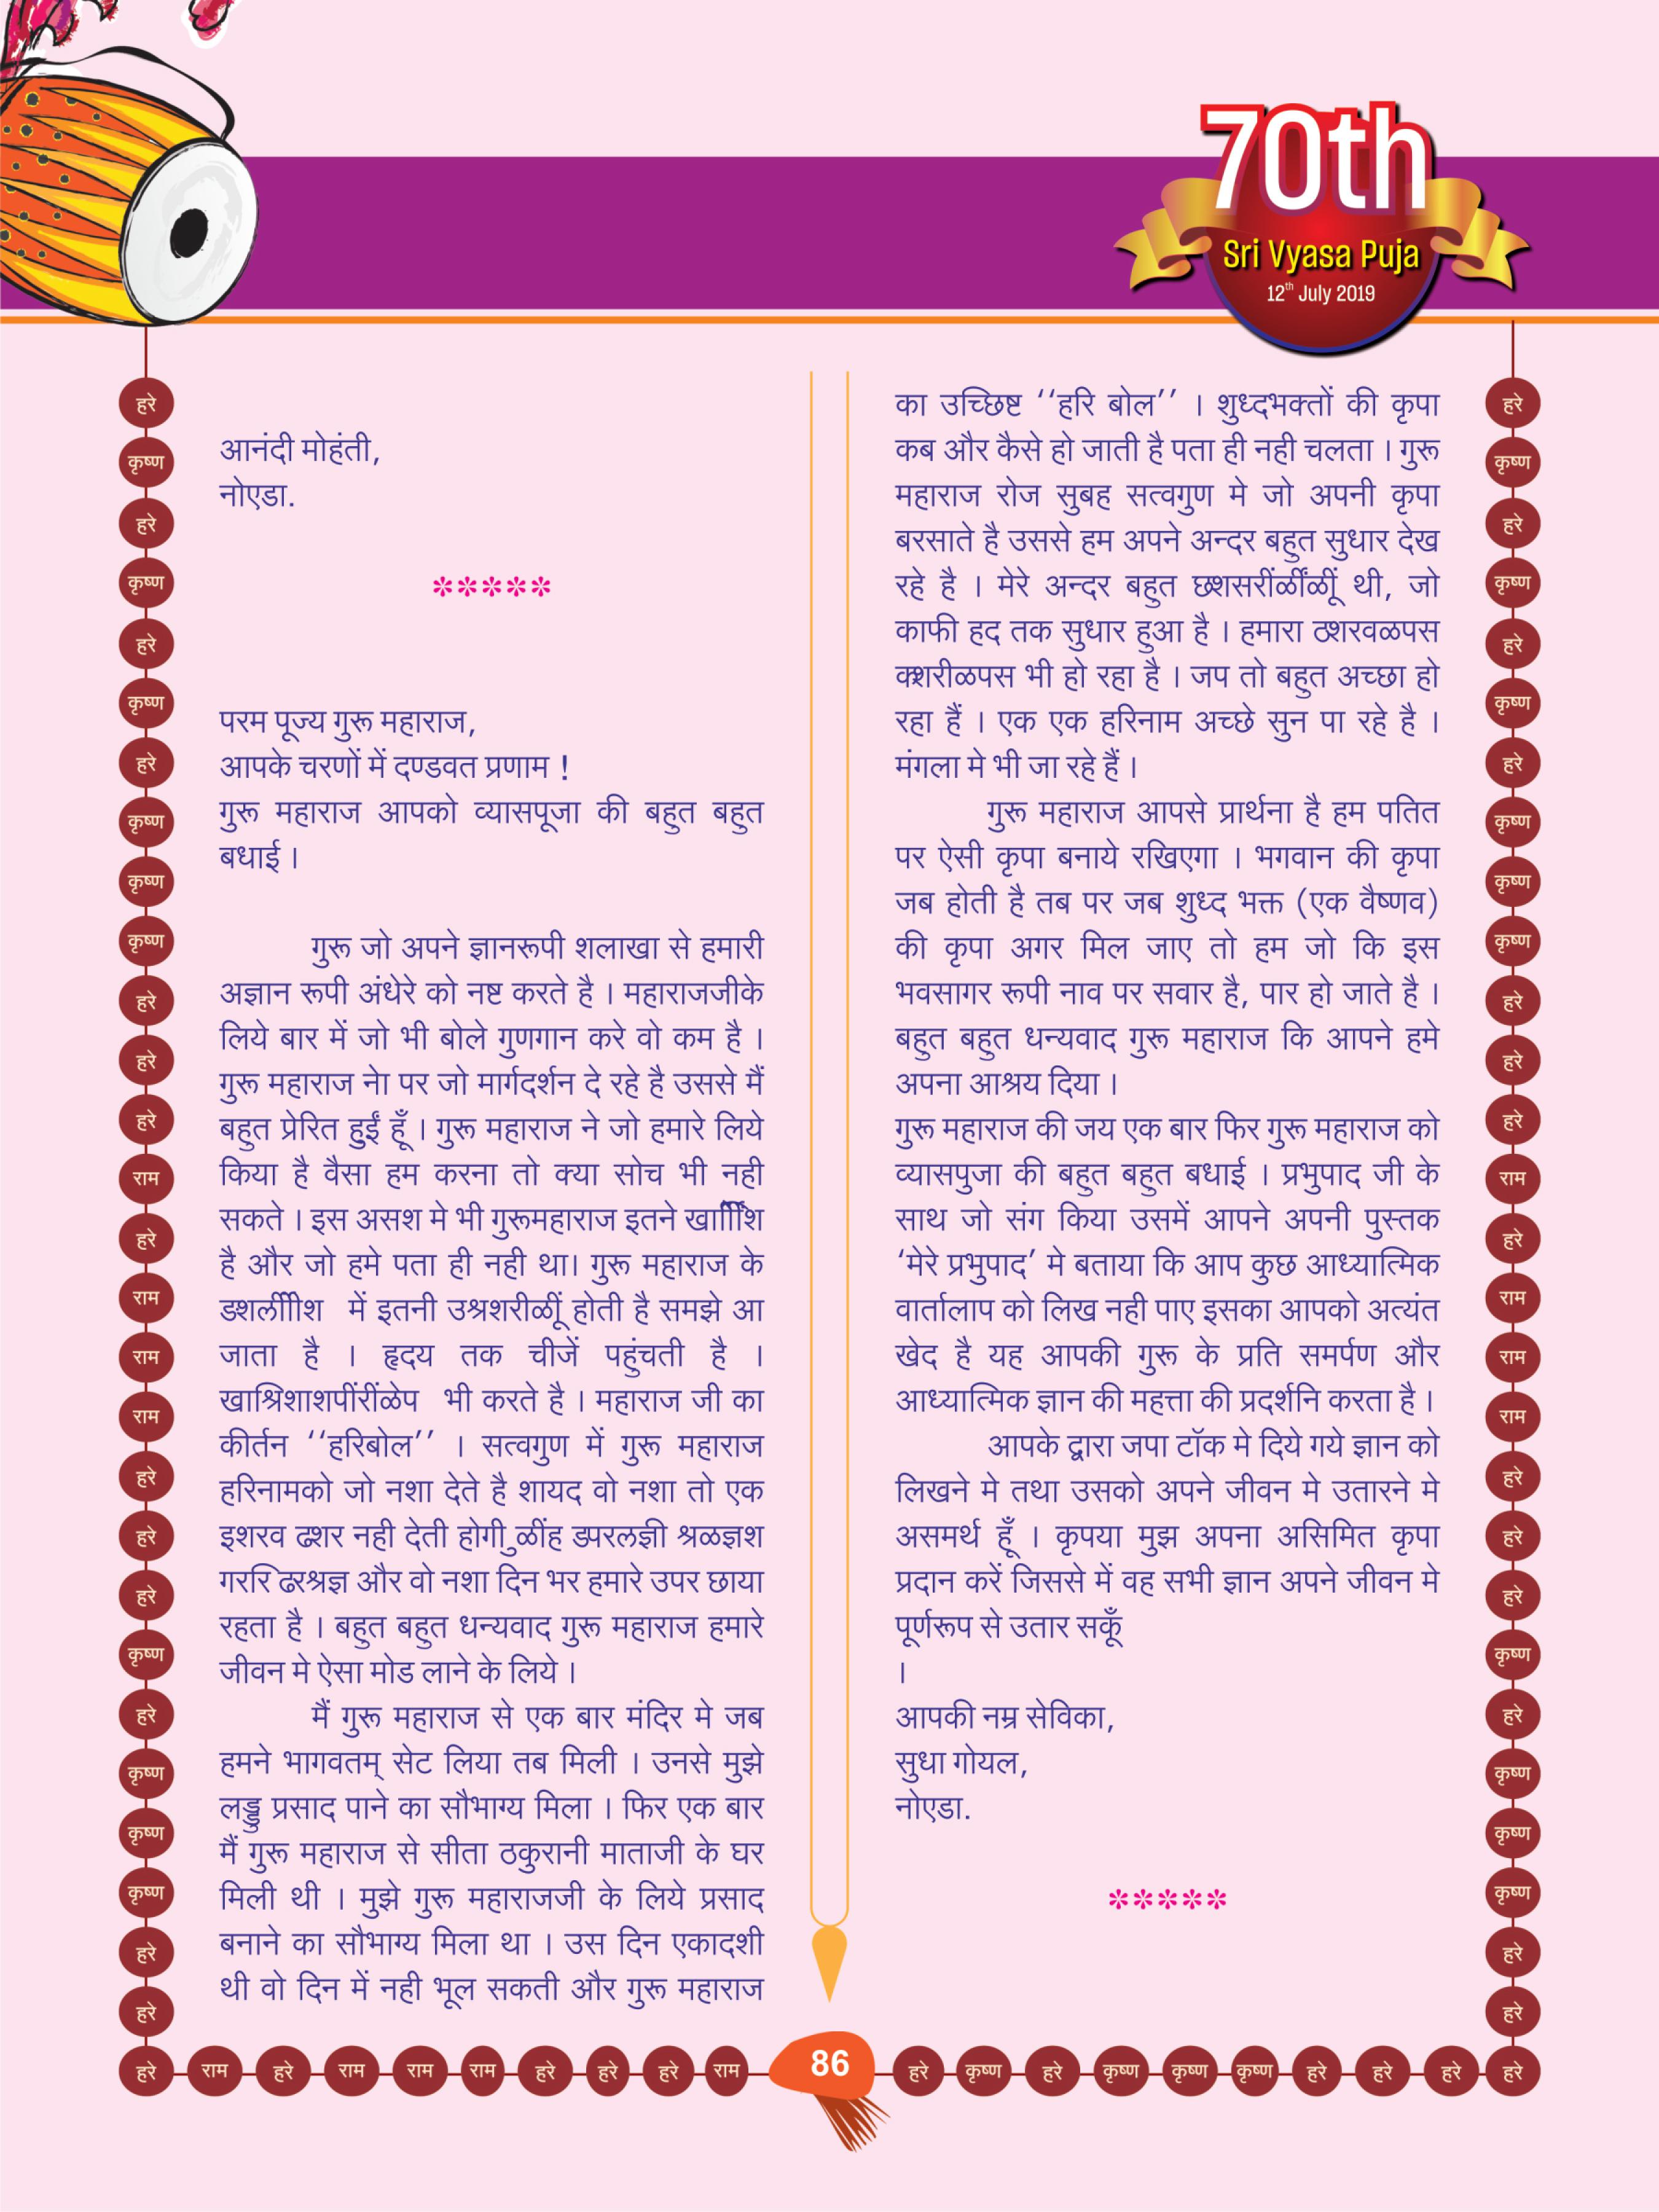 70th
Sri Vyasa Puja
12th July 2019
आनंदी मोहंती,
नोएडा.
*****
परम पूज्य गुरू महाराज,
आपके चरणों में दण्डवत प्रणाम !
गुरू महाराज आपको व्यासपूजा की बहुत बहुत
बधाई ।
गुरू जो अपने ज्ञानरूपी शलाखा से हमारी
अज्ञान रूपी अंधेरे को नष्ट करते है । महाराजजीके
लिये बार में जो भी बोले गुणगान करे वो कम है ।
गुरू महाराज नेा पर जो मार्गदर्शन दे रहे है उससे मैं
बहुत प्रेरित हुुई हूँ । गुरू महाराज ने जो हमारे लिये
किया है वैसा हम करना तो क्या सोच भी नही
सकते । इस असश मे भी गुरूमहाराज इतने
है और जो हमे पता ही नही था। गुरू महाराज के
में इतनी होती है समझे आ
जाता है । हृदय तक चीजें पहुंचती है ।
खाश्रिशाशपींरींळेप भी करते है । महाराज जी का
कीर्तन ‘‘हरिबोल’’ । सत्वगुण में गुरू महाराज
हरिनामको जो नशा देते है शायद वो नशा तो एक
इशरव नही देती होगी
और वो नशा दिन भर हमारे उपर छाया
रहता है । बहुत बहुत धन्यवाद गुरू महाराज हमारे
जीवन मे ऐसा मोड लाने के लिये ।
मैं गुरू महाराज से एक बार मंदिर मे जब
हमने भागवतम् सेट लिया तब मिली । उनसे मुझे
लड्डु प्रसाद पाने का सौभाग्य मिला । फिर एक बार
मैं गुरू महाराज से सीता ठकुरानी माताजी के घर
मिली थी । मुझे गुरू महाराजजी के लिये प्रसाद
बनाने का सौभाग्य मिला था । उस दिन एकादशी
थी वो दिन में नही भूल सकती और गुरू महाराज
का उच्छिष्ट ‘‘हरि बोल’’ । शुध्दभक्तों की कृपा
कब और कैसे हो जाती है पता ही नही चलता । गुरू
महाराज रोज सुबह सत्वगुण मे जो अपनी कृपा
बरसाते है उससे हम अपने अन्दर बहुत सुधार देख
रहे है । मेरे अन्दर बहुत थी, जो
काफी हद तक सुधार हुआ है । हमारा
भी हो रहा है । जप तो बहुत अच्छा हो
रहा हैं । एक एक हरिनाम अच्छे सुन पा रहे है ।
मंगला मे भी जा रहे हैं ।
गुरू महाराज आपसे प्रार्थना है हम पतित
पर ऐसी कृपा बनाये रखिएगा । भगवान की कृपा
जब होती है तब पर जब शुध्द भक्त (एक वैष्णव)
की कृपा अगर मिल जाए तो हम जो कि इस
भवसागर रूपी नाव पर सवार है, पार हो जाते है ।
बहुत बहुत धन्यवाद गुरू महाराज कि आपने हमे
अपना आश्रय दिया ।
गुरू महाराज की जय एक बार फिर गुरू महाराज को
व्यासपुजा की बहुत बहुत बधाई । प्रभुपाद जी के
साथ जो संग किया उसमें आपने अपनी पुस्तक
‘मेरे प्रभुपाद’ मे बताया कि आप कुछ आध्यात्मिक
वार्तालाप को लिख नही पाए इसका आपको अत्यंत
खेद है यह आपकी गुरू के प्रति समर्पण और
आध्यात्मिक ज्ञान की महत्ता की प्रदर्शनि करता है ।
आपके द्वारा जपा टॉक मे दिये गये ज्ञान को
लिखने मे तथा उसको अपने जीवन मे उतारने मे
असमर्थ हूँ । कृपया मुझ अपना असिमित कृपा
प्रदान करें जिससे में वह सभी ज्ञान अपने जीवन मे
पूर्णरूप से उतार सकूँ
।
आपकी नम्र सेविका,
सुधा गोयल,
नोएडा.
*****
हरे राम हरे राम राम राम हरे हरे हरे राम 86 हरे कृष्ण हरे कृष्ण कृष्ण कृष्ण हरे हरे हरे हरे